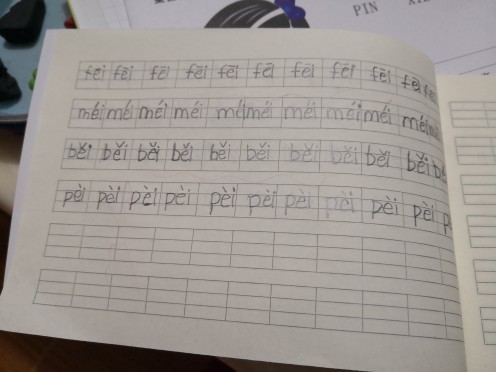 PIN
fēi fēi fēi fēi fēi fēi fēi fēi fēi fēi
méi méi méi méi méi méi méi méi méi méi
běi běi běi běi běi běi běi běi běi běi
pèi pèi pèi pèi pèi pèi pèi pèi pèi pèi